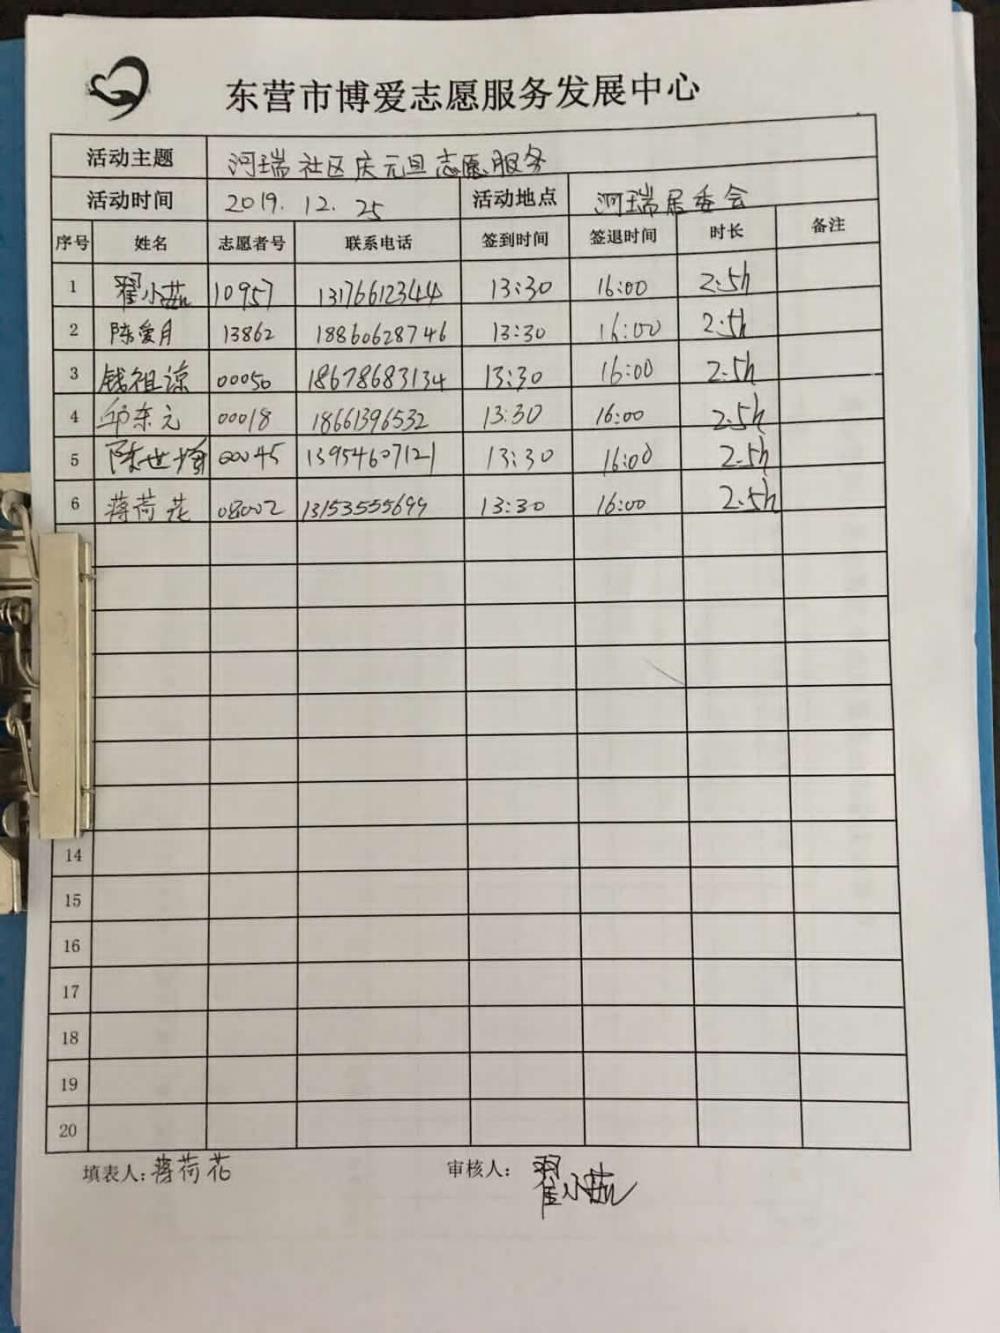 东营市博爱志愿服务发展中心
活动主题 河瑞社区庆元旦志愿服务
活动时间 2019.12.25 活动地点 河瑞居委会
序号 姓名 志愿者号 联系电话 签到时间 签退时间 时长 备注
1 翟小茹 10957 13176612344 13:30 16:00 2.5h
2 陈爱月 13862 18860628746 13:30 16:00 2.5h
3 钱祖谅 00050 18678683134 13:30 16:00 2.5h
4 邱东元 00018 18661396532 13:30 16:00 2.5h
5 陈世 00045 13954607121 13:30 16:00 2.5h
6 蒋荷花 08002 13153555699 13:30 16:00 2.5h
14
15
16
17
18
19
20
填表人:蒋荷花 审核人: 翟小茹